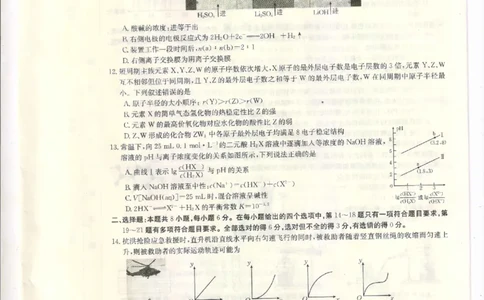 H₂SO₄ 进 Li₂SO₄ 进 LiOH 进
A. 酸碱的浓度:进等于出
B. 右侧电极的电极反应式为 2H₂O+2e⁻=2OH⁻+H₂↑
C. 装置工作一段时间后,n(a):n(b)=2:1
D. 右侧离子交换膜为阴离子交换膜
12. 短周期主族元素 X、Y、Z、W 的原子序数依次增大,X 原子的最外层电子数是电子层数的 3 倍,元素 Y、Z、W
互不相邻但位于同周期,且 Y、Z 的最外层电子数之和等于 W 的最外层电子数,W 在同周期中原子半径最
小。下列叙述错误的是
A. 原子半径的大小顺序:r(Y)>r(Z)>r(W)
B. 元素 X 的简单气态氢化物的热稳定性比 Z 的强
C. 元素 W 的最高价氧化物对应水化物的酸性比 Z 的弱
D. Z、W 形成的化合物 ZW₃ 中各原子最外层电子均满足 8 电子稳定结构
13. 常温下,向 25 mL 0.1 mol·L⁻¹ 的二元酸 H₂X 溶液中逐滴加入等浓度的 NaOH 溶液,
溶液的 pH 与离子浓度变化的关系如图所示,下列说法正确的是
A. 曲线 I 表示 lg c(HX⁻)/c(H₂X) 与 pH 的关系
B. 滴入 NaOH 溶液至中性,c(Na⁺)=c(HX⁻)+c(X²⁻)
C. V[NaOH(aq)]=25 mL 时,混合溶液呈碱性
D. 2HX⁻ X²⁻+H₂X 的平衡常数
pH
二、选择题:本题共 8 小题,每小题 6 分。在每小题给出的四个选项中,第 14~18 题只有一项符合题目要求,第
19~21 题有多项符合题目要求。全部选对的得 6 分,选对但不全的得 3 分,有选错的得 0 分。
14. 抗洪抢险应急救援时,直升机沿直线水平向右匀速飞行的同时,被救助者随着竖直钢丝绳的收缩而匀速上
升,则被救助者的实际运动轨迹可能为
y y y y